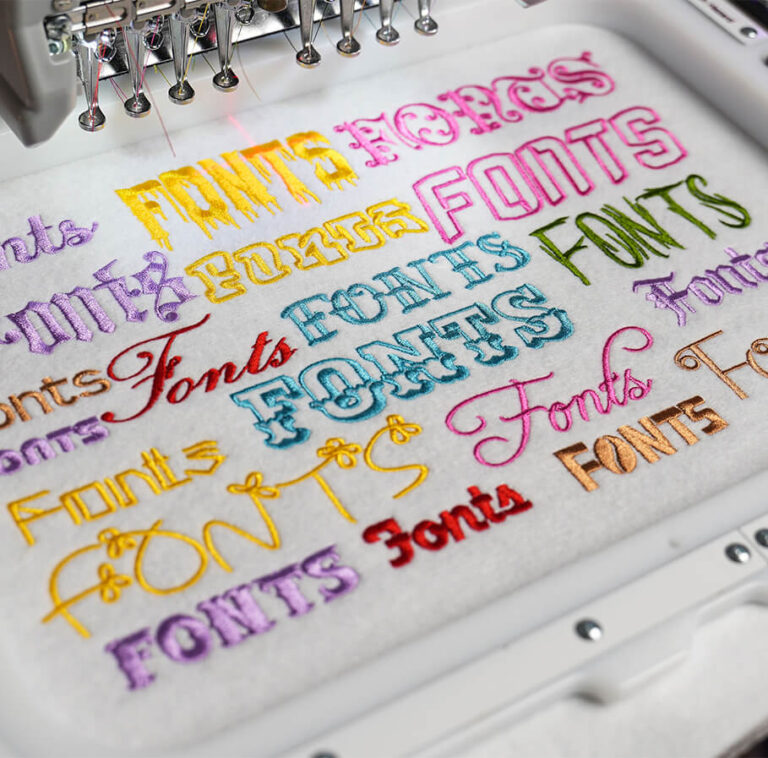 FONTS
FONTS
FONTS
onts
FONTS
ONTS
FONTS
FONTS
Fonts
FONTS
Fonts
onts
Fonts
Fo
ONTS
FONTS
Fonts
FONTS
Fonts
FONTS